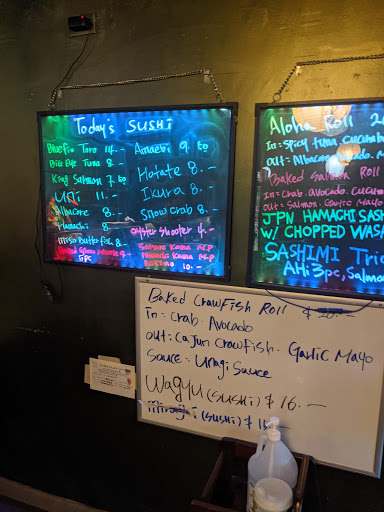 Today's SUSHI
Bluefin Toro 14.-
Big Eye Tuna 8.-
King Salmon 7.50
Uni 11.-
Albacore 8.-
Hamachi 8.-
Miso Butter fish 8.-
Amaebi 9.50
Hotate 8.-
Ikura 8.-
Snow Crab 8.-
Oyster Shooter 4.-
Salmon Kama M.P
Hamachi Kama M.P
10.-
Aloha Roll
in: Spicy tuna. Cucumb
out: Albacore. Avocado. 
Baked Salmon Roll
in: Crab. Avocado. Cucum
out: Salmon. Garlic Mayo
JPN HAMACHI SAS
W/ CHOPPED WASA
SASHIMI Trio
AHi 3pc, Salmon
Baked Crawfish Roll $
in: Crab. Avocado
out: Cajun Crawfish. Garlic Mayo
Sauce: Unagi Sauce
Wagyu (sushi) $ 16.-
(sushi) $ 1